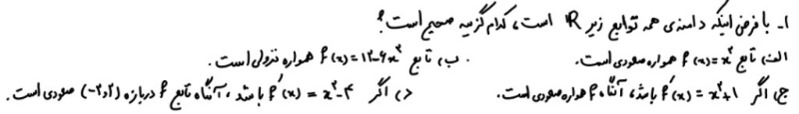 ۱- با فرض اینکه دامنه‌ی همه توابع زیر ℝ است، کدام گزینه صحیح است؟
الف) تابع f(x)=x² همواره صعودی است. ب) تابع f(x)=12-6x² همواره نزولی است.
ج) اگر f'(x)=x²+1 باشد، آنگاه f همواره صعودی است. د) اگر f'(x)=x²-4 باشد، آنگاه تابع f در بازه (-2,2) صعودی است.